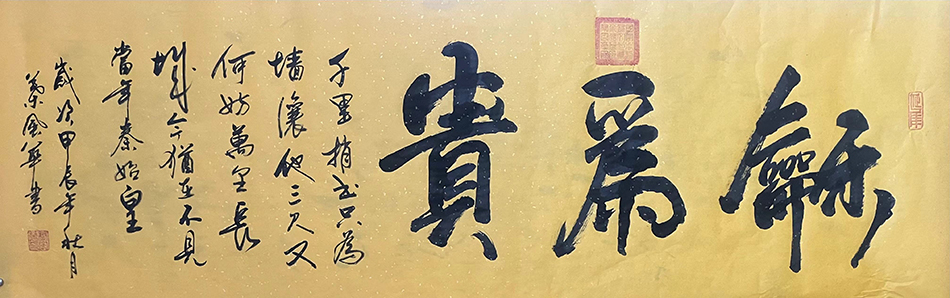 龢爲貴
千里捎書只為
墻讓他三尺又
何妨萬里長
城今猶在不見
當年秦始皇
歲次甲辰年秋月
風華書